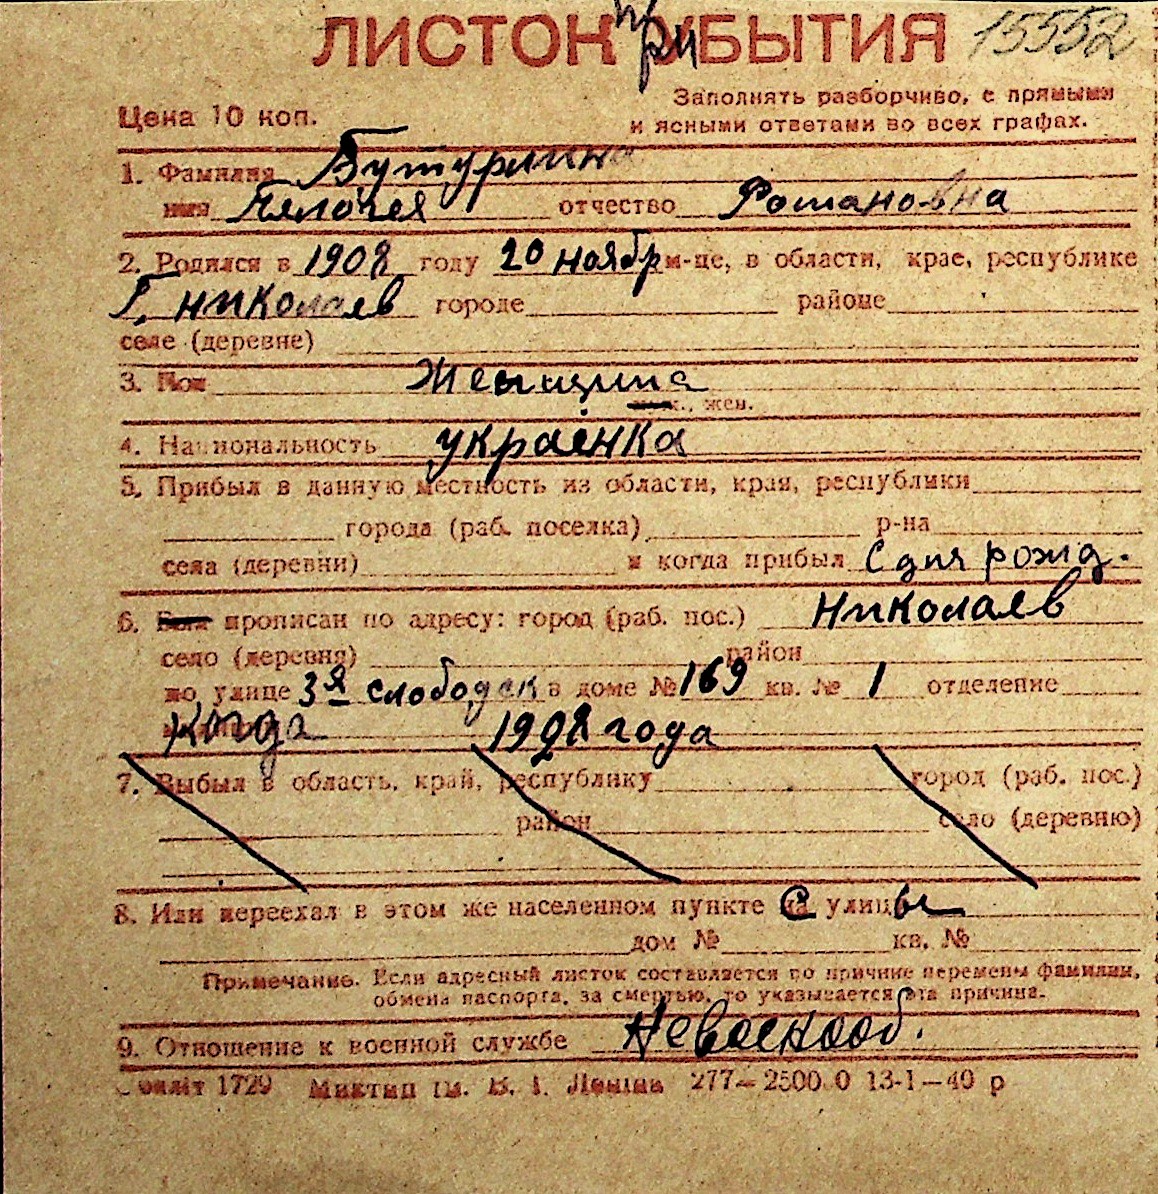 ЛИСТОК при УБЫТИЯ 15552
Цена 10 коп.
Заполнять разборчиво, с прямыми
и ясными ответами во всех графах.
1. Фамилия Бутурлина
имя отчество Романовна
2. Родился в 1908 году 20 ноябр м-це, в области, крае, республике
г. николаев городе районе
селе (деревне)
3. Пол Женщина
муж., жен.
4. Национальность украенка
5. Прибыл в данную местность из области, края, республики
города (раб. поселка) р-на
села (деревни) и когда прибыл с дня рожд.
6. Был прописан по адресу: город (раб. пос.) николаев
село (деревня) район
по улице 3я слободск в доме № 169 кв. № 1 отделение
когда 1908 года
7. Выбыл в область, край, республику город (раб. пос.)
район село (деревню)
8. Или переехал в этом же населенном пункте с улицы
дом № кв. №
Примечание. Если адресный листок составляется по причине перемены фамилии,
обмена паспорта, за смертью, то указывается эта причина.
9. Отношение к военной службе Невоенооб.
1729 им. В. И. Ленина 277—2500 0 13-1—40 р